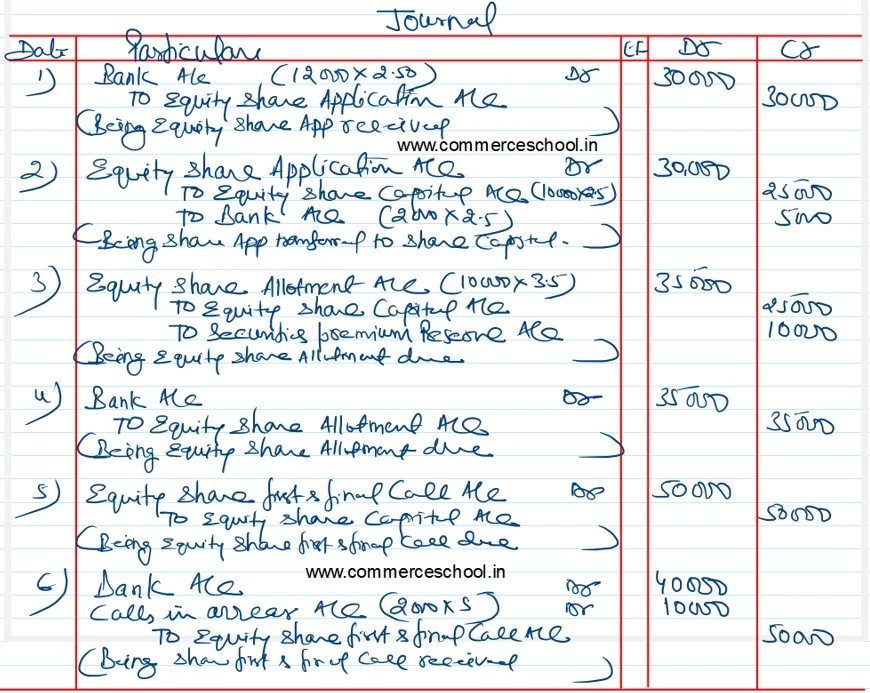 Journal
Date Particulars LF Dr Cr
1) Bank A/c (12000 × 2.50) Dr 30000
To Equity Share Application A/c 30000
(Being Equity Share App received)
www.commerceschool.in
2) Equity Share Application A/c Dr 30,000
To Equity Share Capital A/c (10000×2.5) 25000
To Bank A/c (2000 × 2.5) 5000
(Being Share App transferred to Share Capital.)
3) Equity Share Allotment A/c (10000 × 3.5) 35000
To Equity Share Capital A/c 25000
To Securities premium Reserve A/c 10000
(Being Equity Share Allotment due)
4) Bank A/c Dr 35000
To Equity Share Allotment A/c 35000
(Being Equity Share Allotment due)
5) Equity Share first & final Call A/c Dr 50000
To Equity Share Capital A/c 50000
(Being Equity Share first & final Call due)
www.commerceschool.in
6) Bank A/c Dr 40000
Calls in arrear A/c (2000 × 5) Dr 10000
To Equity Share first & final Call A/c 50000
(Being Share first & final Call received)